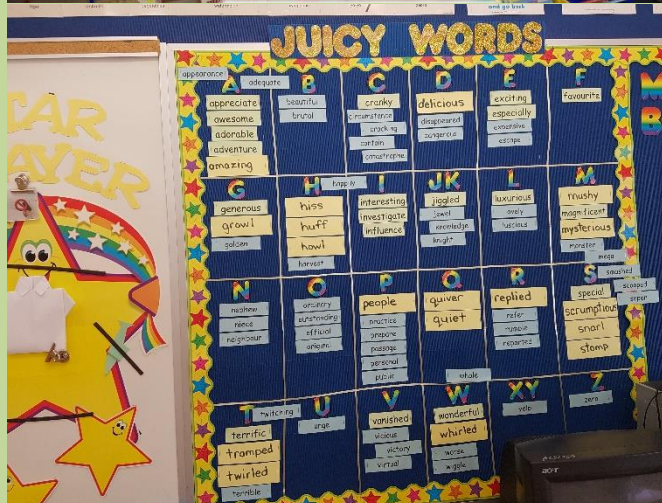 and go back
JUICY WORDS
A
appearance
adequate
appreciate
awesome
adorable
adventure
amazing
B
beautiful
brutal
C
cranky
circumstance
cracking
contain
catastrophe
D
delicious
disappeared
dangerous
E
exciting
especially
expensive
escape
F
favourite
G
generous
growl
golden
H
happily
hiss
huff
howl
harvest
I
interesting
investigate
influence
JK
jiggled
jewel
knowledge
knight
L
luxurious
lovely
luscious
M
mushy
magnificent
mysterious
monster
mega
N
nephew
niece
neighbour
O
ordinary
outstanding
official
origami
P
people
practice
prepare
passage
personal
public
Q
quiver
quiet
R
replied
refer
rumble
reported
S
squished
scooped
super
special
scrumptious
snarl
stomp
T
twitching
terrific
tramped
twirled
terrible
U
urge
V
vanished
vicious
victory
virtual
W
whole
wonderful
whirled
worse
wiggle
XY
yelp
Z
zero
acer